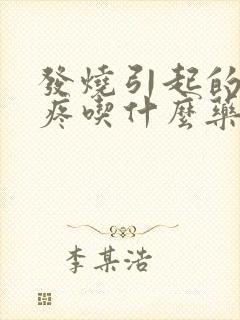 發燒引起的
疼喫什麼藥
李某浩